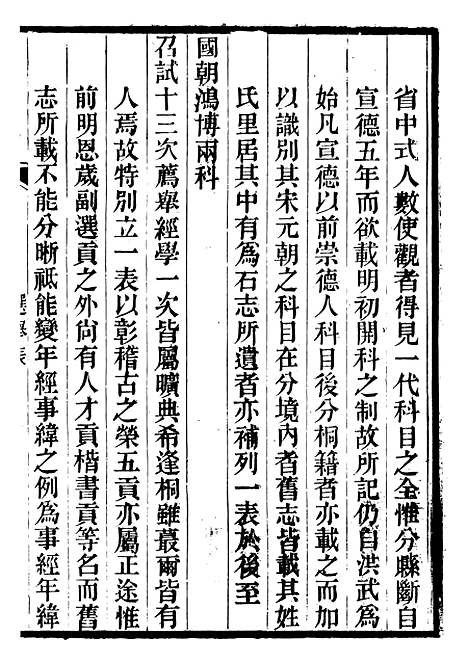 省中式人數使觀者得見一代科目之全惟分縣斷自
宣德五年而欲載明初開科之制故所記仍自洪武爲
始凡宣德以前崇德人科目後分桐籍者亦載之而加
以識別其宋元朝之科目在分境內者舊志皆載其姓
氏里居其中有爲石志所遺者亦補列一表於後至
國朝鴻博兩科
召試十三次薦舉經學一次皆屬曠典希逢桐雖蕞爾皆有
人焉故特別立一表以彰稽古之榮五貢亦屬正途惟
前明恩歲副選貢之外尙有人才貢楷書貢等名而舊
志所載不能分晰祗能變年經事緯之例爲事經年緯
選舉表